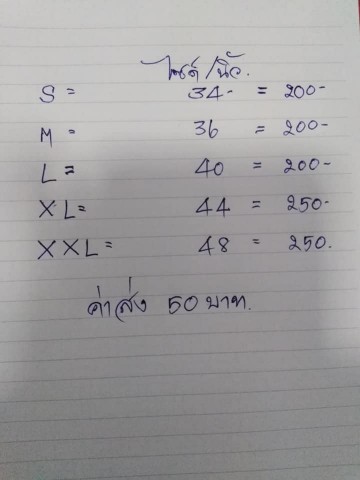 ไซด์/นิ้ว.
S = 34- = 200-
M = 36 = 200-
L = 40 = 200-
XL= 44 = 250-
XXL= 48 = 250.
ค่าส่ง 50 บาท.